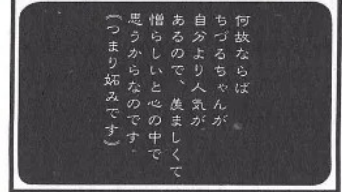 何故ならば
ちづるちゃんが
自分より人気が
あるので、羨ましくて
憎らしいと心の中で
思うからなのです。
（つまり妬みです）